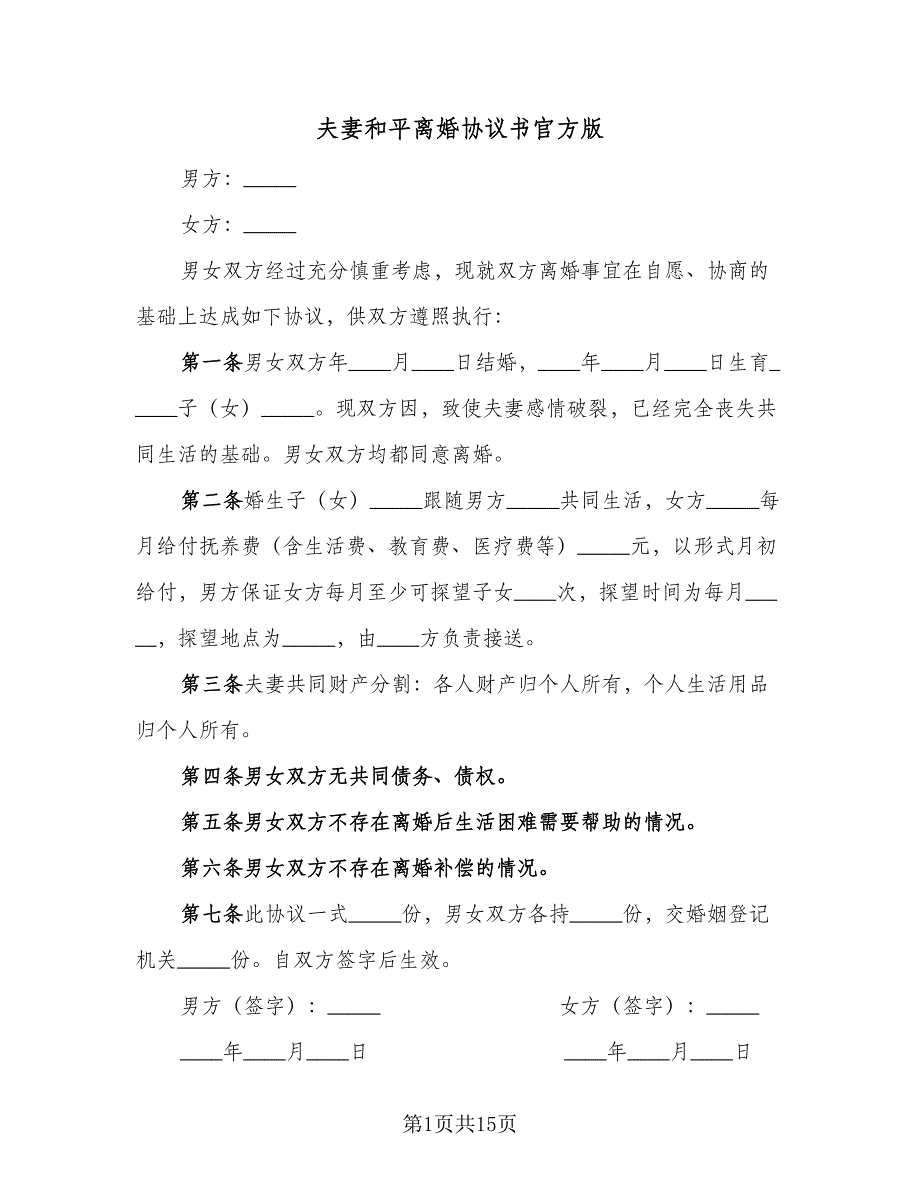 夫妻和平离婚协议书官方版
男方：_____
女方：_____
男女双方经过充分慎重考虑，现就双方离婚事宜在自愿、协商的
基础上达成如下协议，供双方遵照执行：
第一条男女双方年____月____日结婚，____年____月____日生育_
____子（女）_____。现双方因，致使夫妻感情破裂，已经完全丧失共
同生活的基础。男女双方均都同意离婚。
第二条婚生子（女）_____跟随男方_____共同生活，女方_____每
月给付抚养费（含生活费、教育费、医疗费等）_____元，以形式月初
给付，男方保证女方每月至少可探望子女____次，探望时间为每月___
__，探望地点为_____，由____方负责接送。
第三条夫妻共同财产分割：各人财产归个人所有，个人生活用品
归个人所有。
第四条男女双方无共同债务、债权。
第五条男女双方不存在离婚后生活困难需要帮助的情况。
第六条男女双方不存在离婚补偿的情况。
第七条此协议一式_____份，男女双方各持_____份，交婚姻登记
机关_____份。自双方签字后生效。
男方（签字）：_____ 女方（签字）：_____
____年____月____日 ____年____月____日
第1页共15页